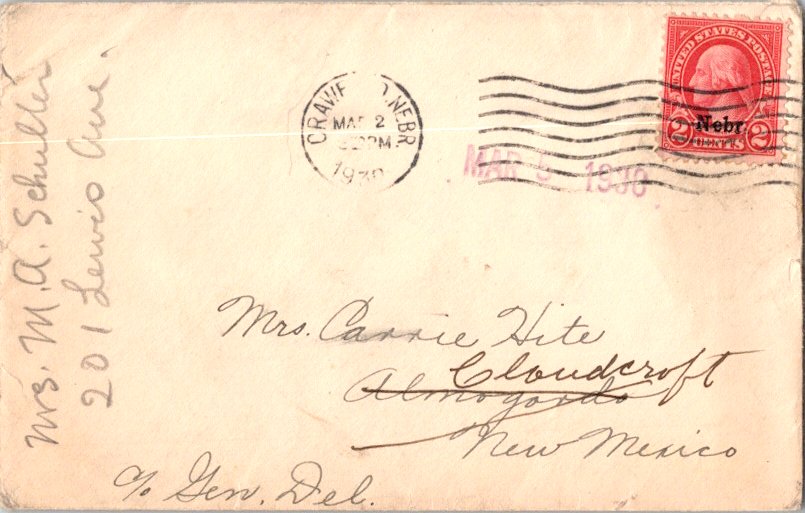 Mrs. M. A. Schuller
201 Lewis Ave.
CRAWF D, NEBR
MAR 2
PM
1930
UNITED STATES POSTAGE
Nebr.
2 CENTS 2
MAR 5 1930
Mrs. Carrie Hite
Cloudcroft
Almogordo
New Mexico
c/o Gen. Del.